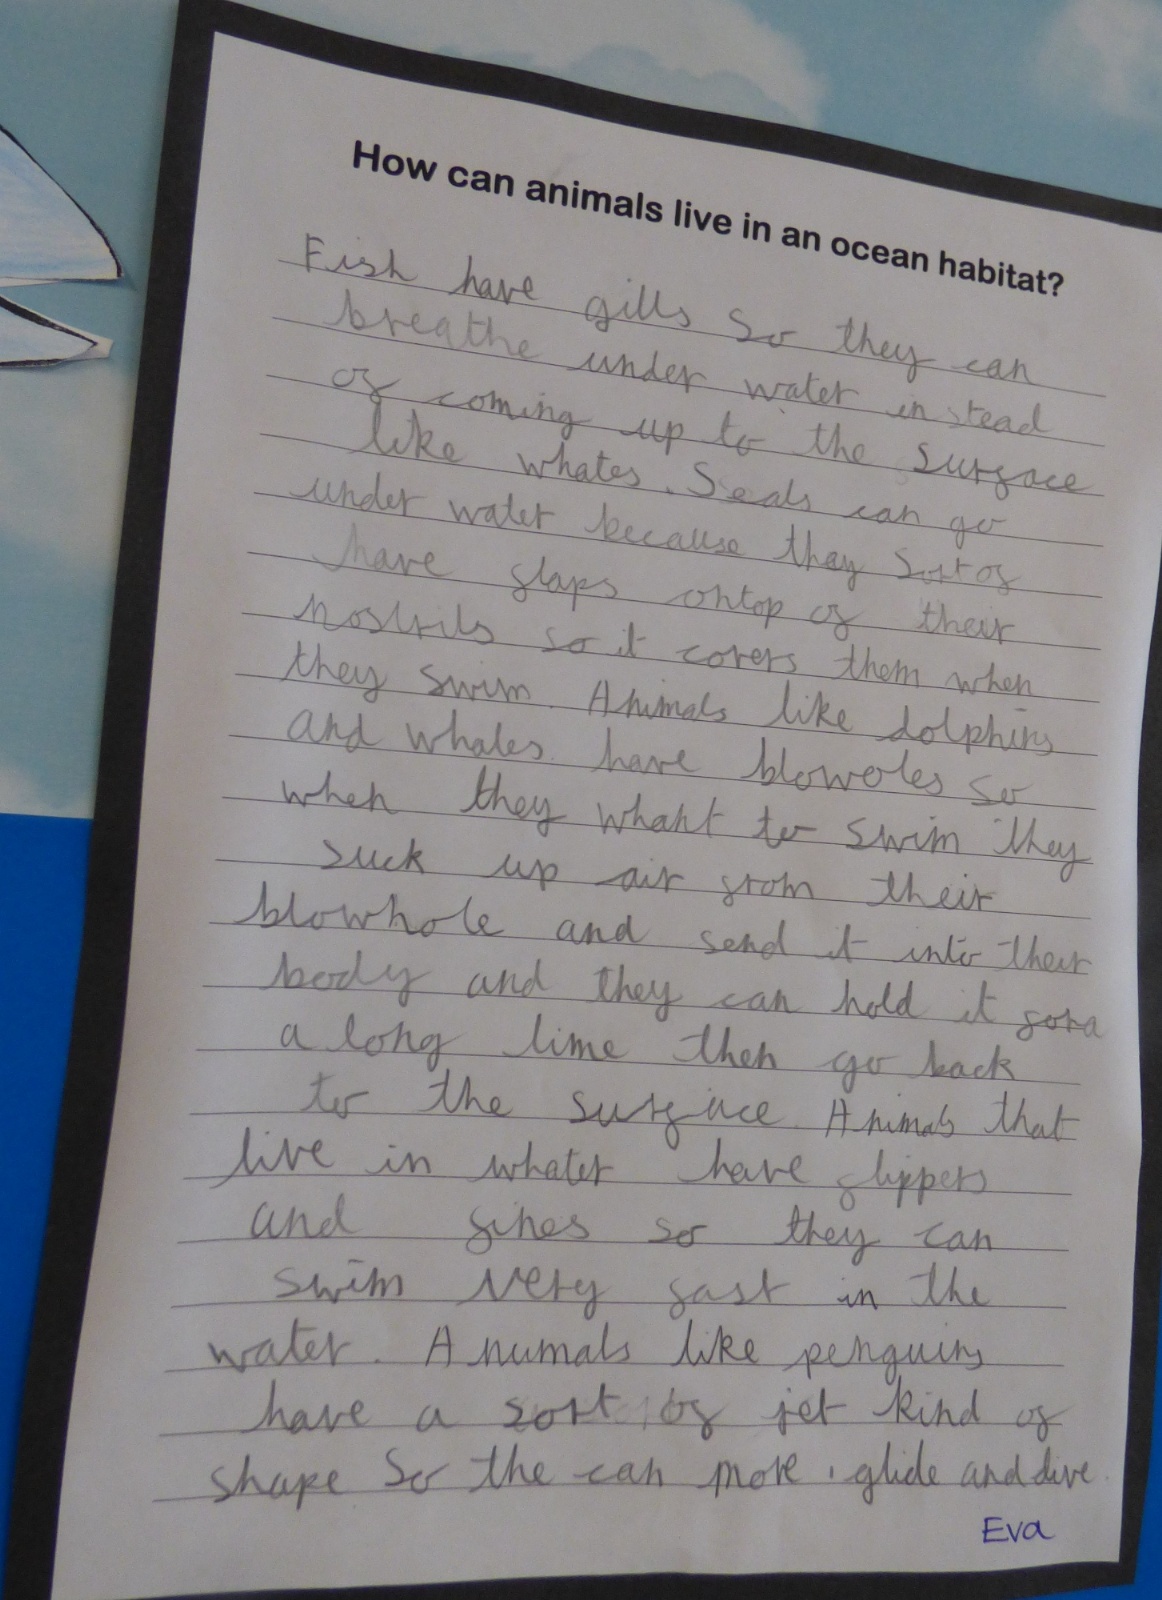 How can animals live in an ocean habitat?
Fish have gills so they can
breathe under water instead
of coming up to the surface
like whates. Seals can go
under water because thay sort of
have flaps ontop of their
nostrils so it covers them when
they swim. Animals like dolphins
and whales. have blowoles so
when they whant to swim they
suck up air from their
blowhole and send it into their
body and they can hold it fora
a long time then go back
to the surface. Animals that
live in whater have flippers
and fines so they can
swim very fast in the
water. Anumals like penguins
have a sort of jet kind of
shape so the can more glide and dive.
Eva